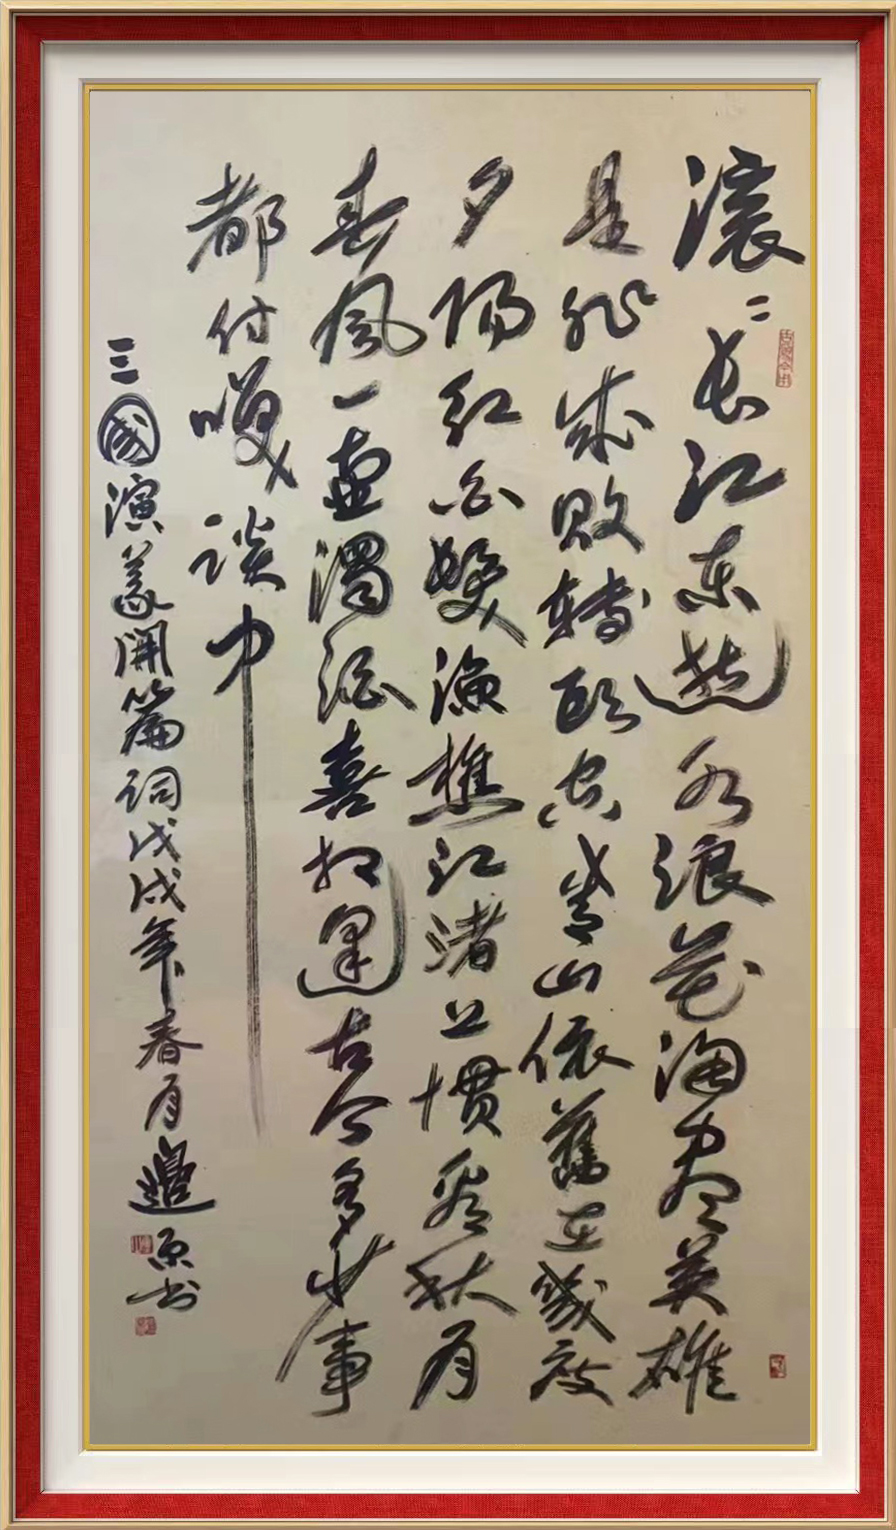 滚〻长江东逝水浪花淘尽英雄
是非成败转头空青山依舊在幾度
夕阳红白髮渔樵江渚上惯看秋月
春风一壶濁酒喜相逢古今多少事
都付笑谈中
三國演義開篇词戊戌年春月邊原书